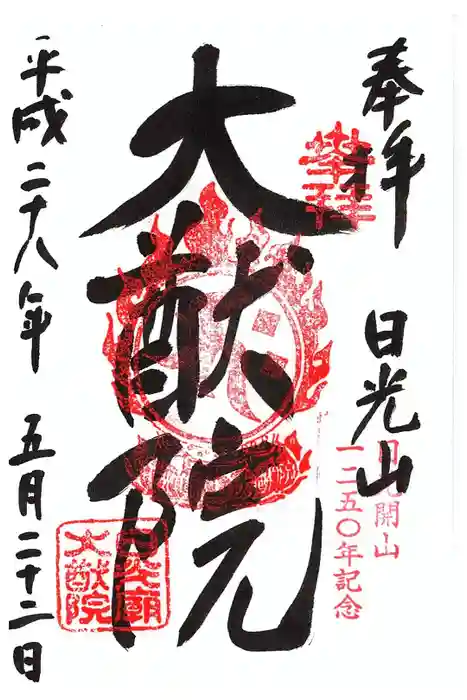 奉拝 日光山
日光開山
一二五〇年記念
大猷院
平成二十八年 五月二十二日
大猷院